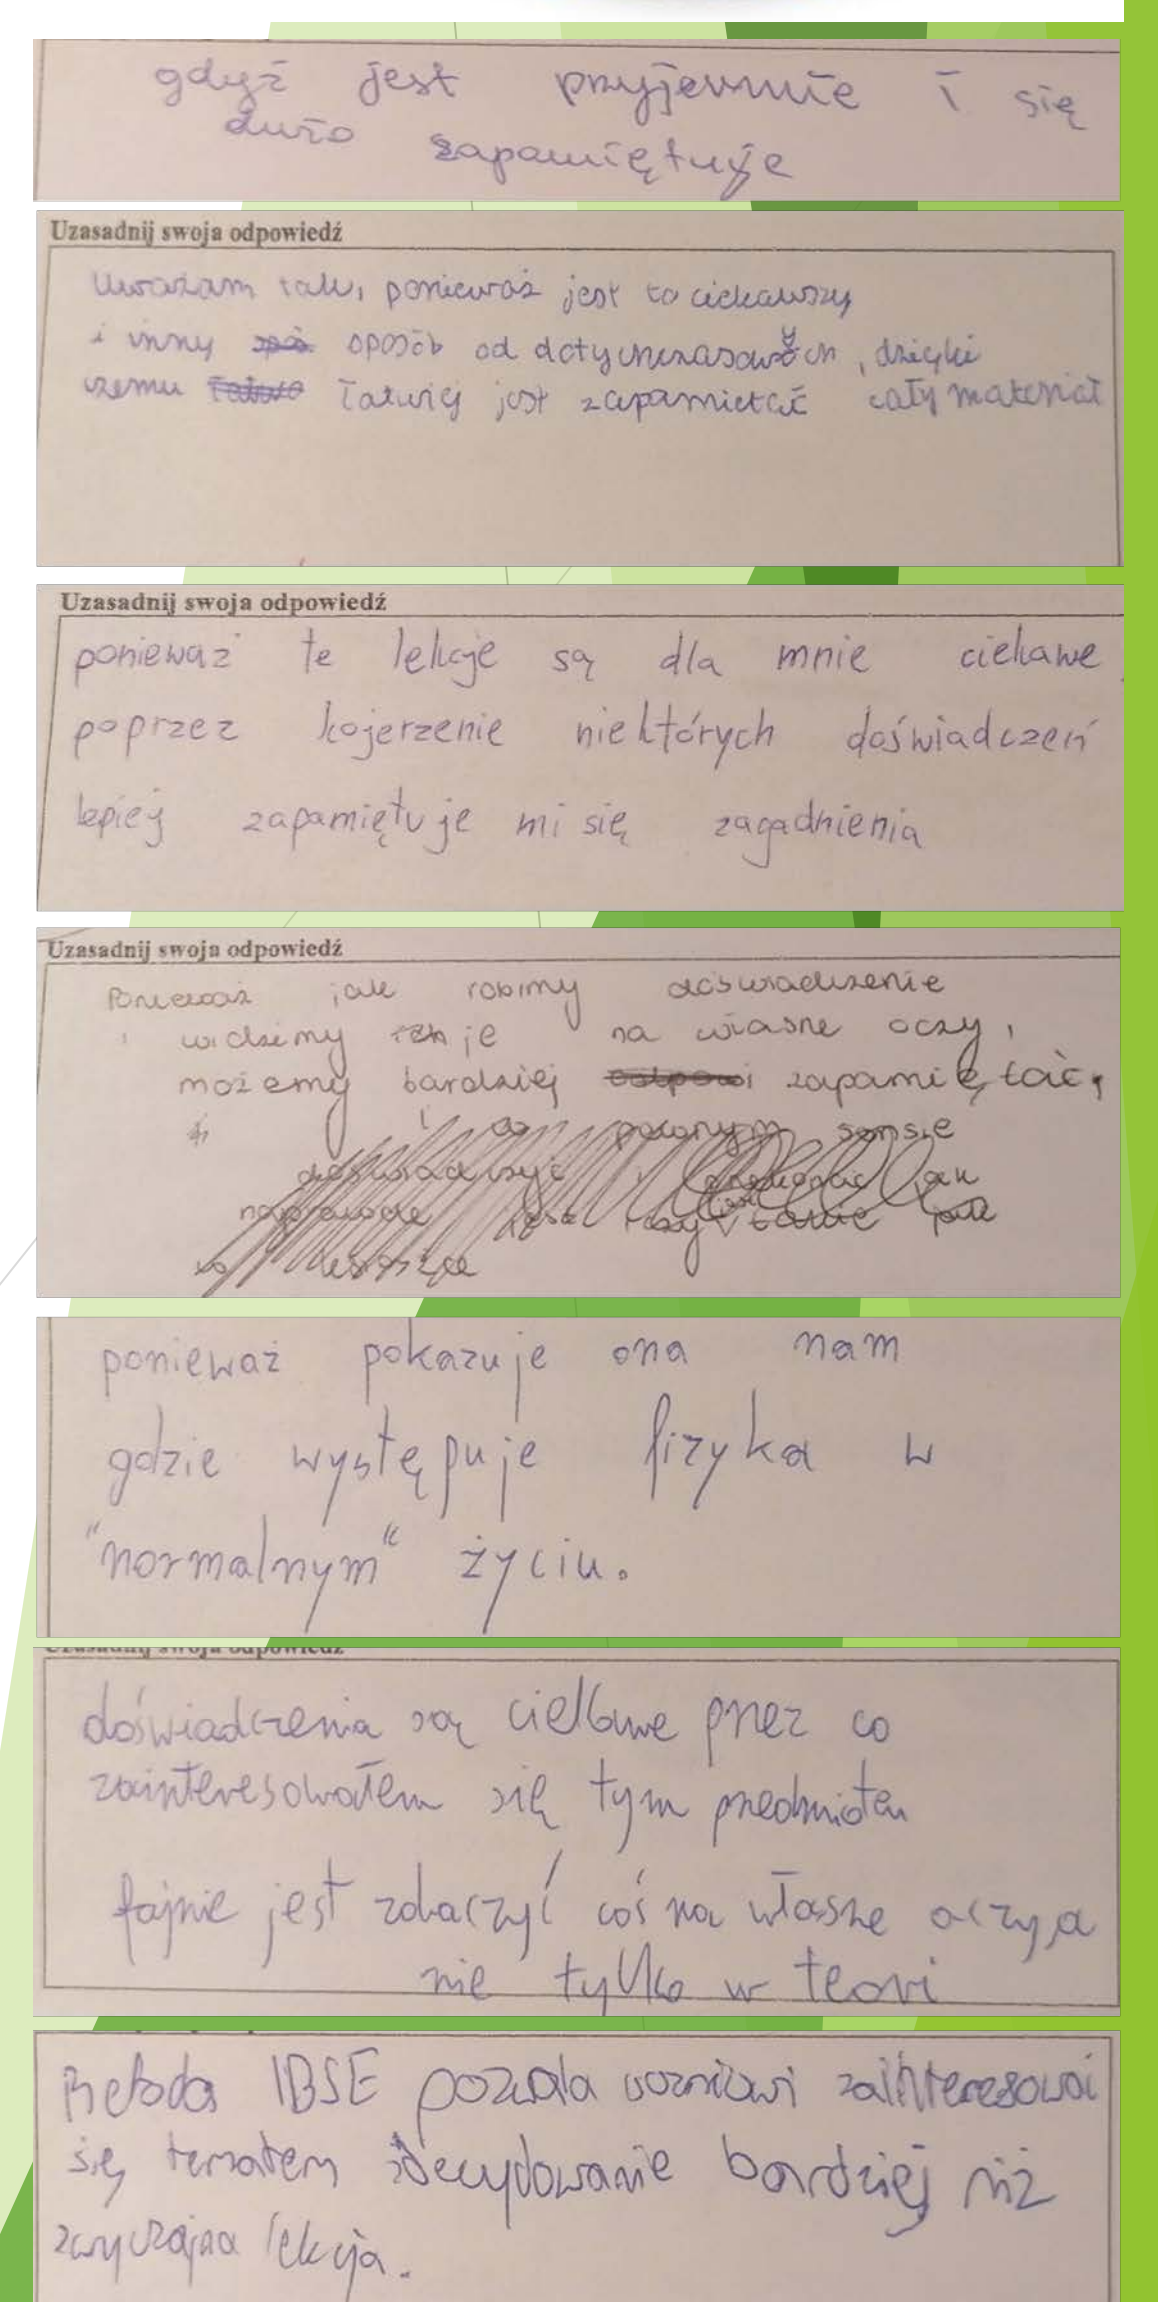 gdyż jest przyjemnie i się
dużo zapamiętuje
Uzasadnij swoja odpowiedź
Uważam tak, ponieważ jest to ciekawszy
i inny sposób od dotychczasowych, dzięki
czemu łatwiej jest zapamiętać cały materiał
Uzasadnij swoja odpowiedź
ponieważ te lekcje są dla mnie ciekawe,
poprzez kojerzenie niektórych doświadczeń
lepiej zapamiętuje mi się zagadnienia
Uzasadnij swoja odpowiedź
Ponieważ jak robimy doświadczenie
i widzimy je na własne oczy,
możemy bardziej zapamiętać,
ponieważ pokazuje ona nam
gdzie występuje fizyka w
"normalnym" życiu.
Uzasadnij swoja odpowiedź
doświadczenia są ciekawe przez co
zainteresowałem się tym przedmiotem
fajnie jest zobaczyć coś na własne oczy, a
nie tylko w teori
Metoda IBSE pozwala uczniowi zainteresować
się tematem zdecydowanie bardziej niż
zwyczajna lekcja.